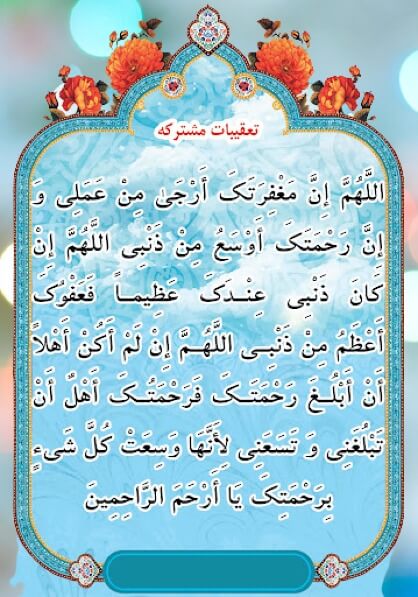 تعقیبات مشترکه
اللَّهُمَّ إِنَّ مَغْفِرَتَکَ أَرْجَىٰ مِنْ عَمَلِی وَ
إِنَّ رَحْمَتَکَ أَوْسَعُ مِنْ ذَنْبِی اللَّهُمَّ إِنْ
کَانَ ذَنْبِی عِنْدَکَ عَظِیماً فَعَفْوُکَ
أَعْظَمُ مِنْ ذَنْبِی اللَّهُمَّ إِنْ لَمْ أَکُنْ أَهْلاً
أَنْ أَبْلُغَ رَحْمَتَکَ فَرَحْمَتُکَ أَهْلٌ أَنْ
تَبْلُغَنِی وَ تَسَعَنِی لِأَنَّهَا وَسِعَتْ کُلَّ شَیءٍ
بِرَحْمَتِکَ یَا أَرْحَمَ الرَّاحِمِینَ